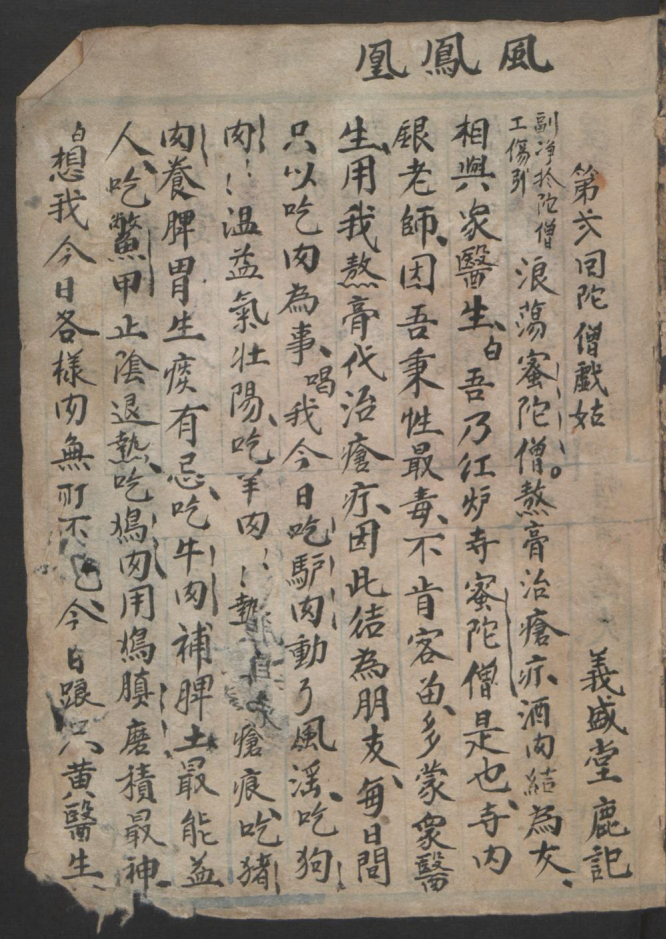 風鳳凰
第弍回陀僧戲姑
義盛堂鹿記
副净扮陀僧
工傷引
浪蕩蜜陀僧。熬膏治瘡疔、酒肉結為友、
相與衆醫生、白吾乃紅炉寺蜜陀僧是也、寺内
銀老師、因吾秉性最毒、不肯容留、多蒙衆醫
生、用我熬膏代治瘡疔、因此结為朋友、每日間
只以吃肉為事、唱我今日吃馿肉動了風淫、吃狗
肉〻温益氣壯陽、吃羊肉〻熱瘡痕、吃猪
肉養脾胃生痰有忌、吃牛肉補脾土最能益
人、吃鱉甲止陰退熱、吃鴆肉用鴆膆磨積最神、
白想我今日各樣肉無所不、今日踉只黄醫生